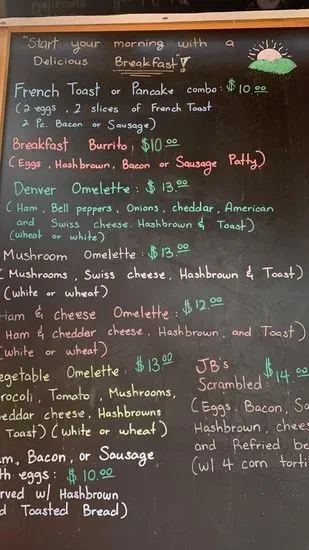 "Start your morning with a
Delicious Breakfast"!
French Toast or Pancake combo: $10.00
(2 eggs, 2 slices of French Toast
2 Pc. Bacon or Sausage)
Breakfast Burrito: $10.00
(Eggs, Hashbrown, Bacon or Sausage Patty)
Denver Omelette: $13.00
(Ham, Bell peppers, Onions, cheddar, American
and Swiss cheese. Hashbrown & Toast)
(wheat or white)
Mushroom Omelette: $13.00
(Mushrooms, Swiss cheese, Hashbrown & Toast)
(white or wheat)
Ham & cheese Omelette: $12.00
Ham & cheddar cheese, Hashbrown, and Toast)
white or wheat)
egetable Omelette: $13.00
rocoli, Tomato, Mushrooms,
eddar cheese, Hashbrowns
Toast) (white or wheat)
m, Bacon, or Sausage
th eggs: $10.00
rved w/ Hashbrown
d Toasted Bread)
JB's $14.00
Scrambled:
(Eggs, Bacon, Sa
Hashbrown, chees
and Refried be
(w/ 4 corn torti